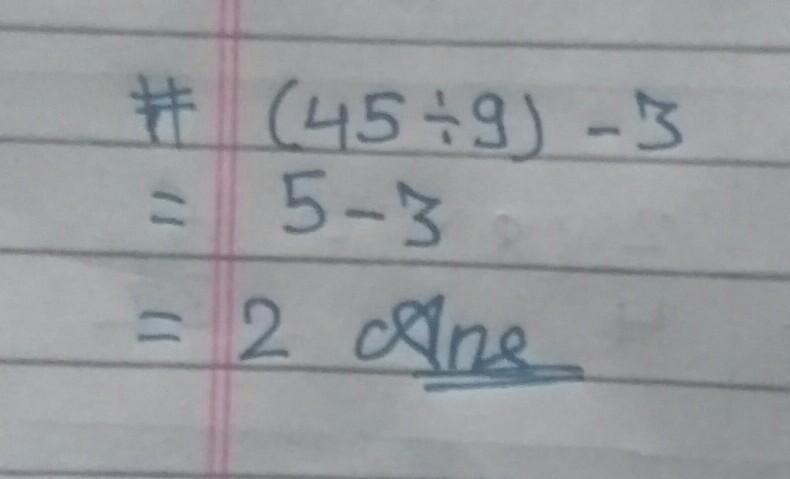 # (45÷9) -3
= 5-3
= 2 Ans